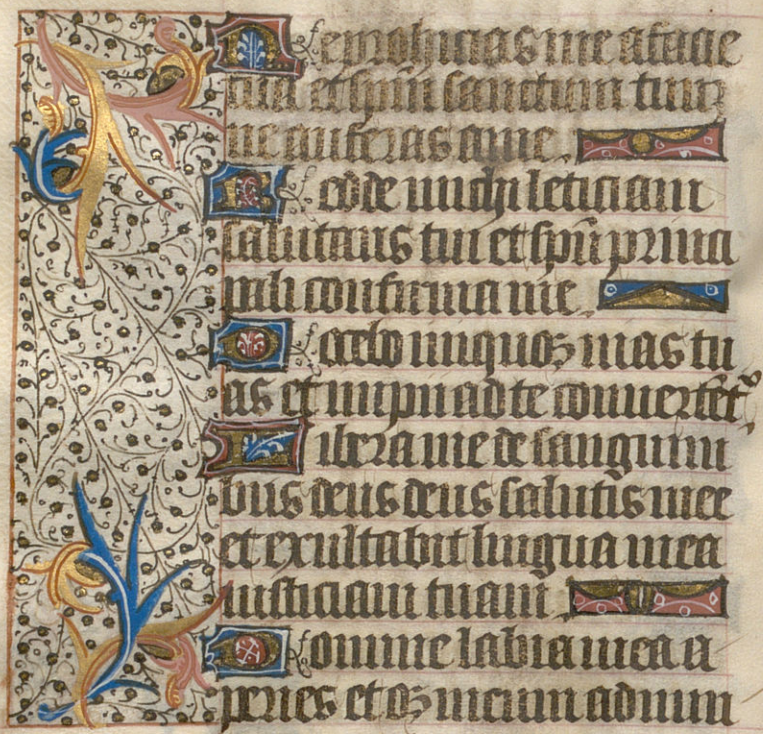 Ne prohicias me a facie
tua et sp̄m sanctum tuū
ne auferas a me.
Redde michi leticiam
salutaris tui et sp̄u princi
pali confirma me.
Docebo iniquoꝫ uias tu
as et impii ad te conuertēt᷒
Libera me de sanguini
bus deus deus salutis mee
et exultabit lingua mea
iusticiam tuam
Domine labia mea a
peries et oꝫ meum adnun